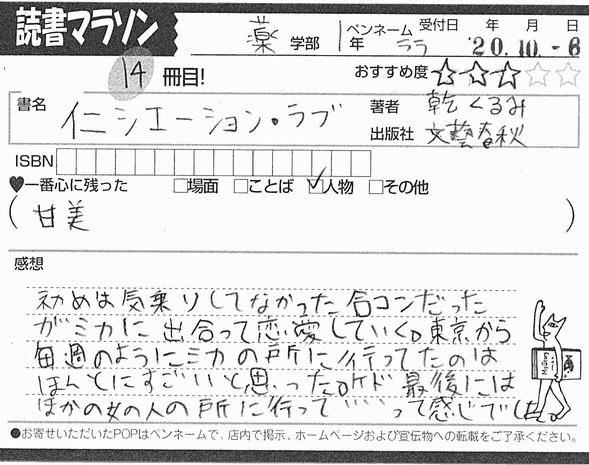 読書マラソン
薬 学部 年
ペンネーム ララ
受付日 年 月 日
'20.10.-6
14 冊目!
おすすめ度 ★★★☆☆
書名 イニシエーション・ラブ
著者 乾くるみ
出版社 文藝春秋
ISBN
♥一番心に残った □場面 □ことば ☑人物 □その他
(甘美)
感想
初めは気乗りしてなかった合コンだった
がミカに出合って恋愛していく。東京から
毎週のようにミカの戸所に行ってたのは
ほんとにすごいと思った。ケド最後には
ほかの女の人の戸所に行って…って感じでした。
●お寄せいただいたPOPはペンネームで、店内で掲示、ホームページおよび宣伝物への転載をご了承ください。